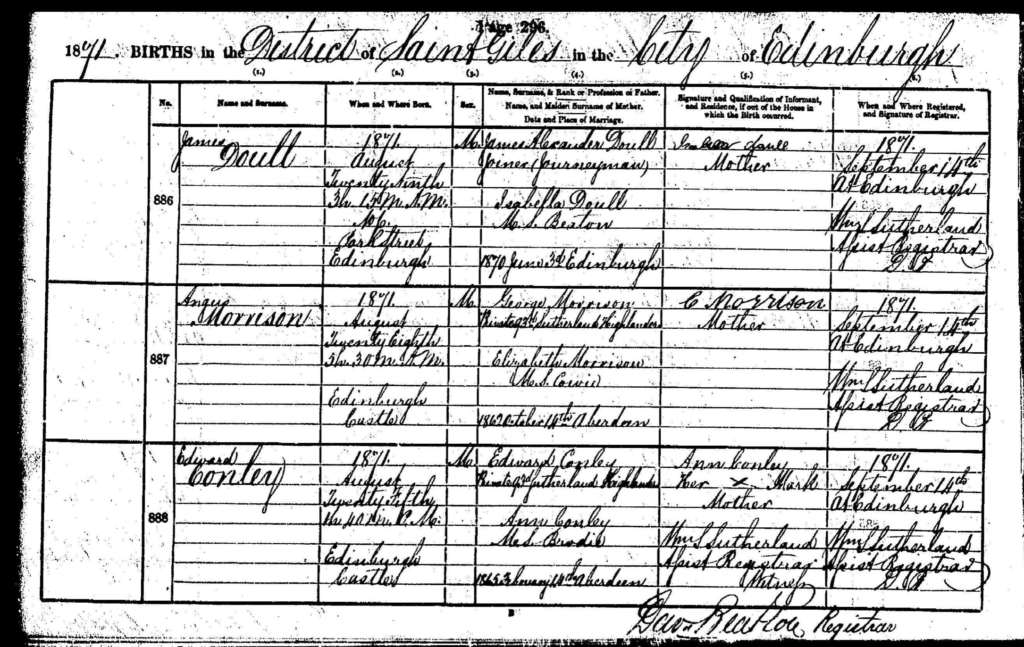 Page 296.
1871. BIRTHS in the District of Saint Giles in the City of Edinburgh
(1.) (2.) (3.) (4.) (5.) (6.)
No.
Name and Surname.
When and Where Born.
Sex.
Name, Surname, & Rank or Profession of Father.
Name, and Maiden Surname of Mother.
Date and Place of Marriage.
Signature and Qualification of Informant,
and Residence, if out of the House in
which the Birth occurred.
When and Where Registered,
and Signature of Registrar.
886
James
Doull
1871.
August
Twenty Ninth
3h. 15 M. A.M.
Park Street
Edinburgh
M.
James Alexander Doull
Joiner (Journeyman)
Isabella Doull
M.S. Beaton
1870 June 3d Edinburgh
Mother
1871.
September 14th
At Edinburgh
Wm S Sutherland
Assist Registrar
887
Angus
Morrison
1871.
August
Twenty Eighth
3h. 30 M. A.M.
Edinburgh
Castle
M.
George Morrison
Private 93d Sutherland Highlanders
Elizabeth Morrison
M.S. Cowie
14th Aberdeen
C Morrison
Mother
1871.
September 14th
At Edinburgh
Wm S Sutherland
Assist Registrar
888
Edward
Conley
1871.
August
Twenty Fifth
P.M.
Edinburgh
Castle
M.
Edward Conley
Private 93d Sutherland Highlanders
Ann Conley
M.S. Brodie
Aberdeen
Ann Conley
Her x Mark
Mother
Wm S Sutherland
Assist Registrar
Witness
1871.
September 14th
At Edinburgh
Wm S Sutherland
Assist Registrar
B
Registrar